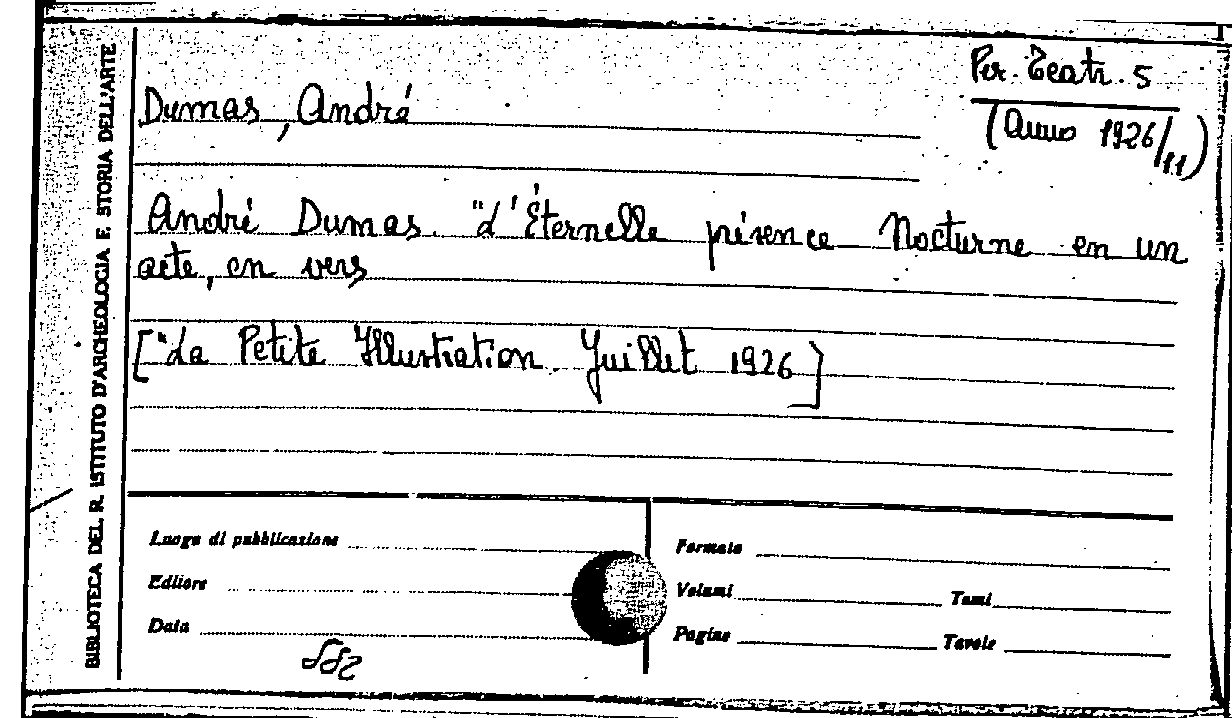 BIBLIOTECA DEL R. ISTITUTO D'ARCHEOLOGIA E STORIA DELL'ARTE
Per. Teatr. 5
(Anno 1926/11)
Dumas, André
André Dumas. "L'Éternelle présence Nocturne en un
acte, en vers
["La Petite Illustration Juillet 1926]
Luogo di pubblicazione
Editore
Data
Formato
Volumi Tomi
Pagine Tavole